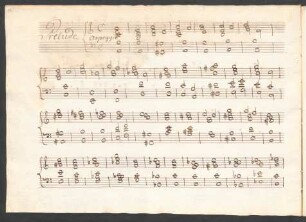 Prelude
Arpegg: